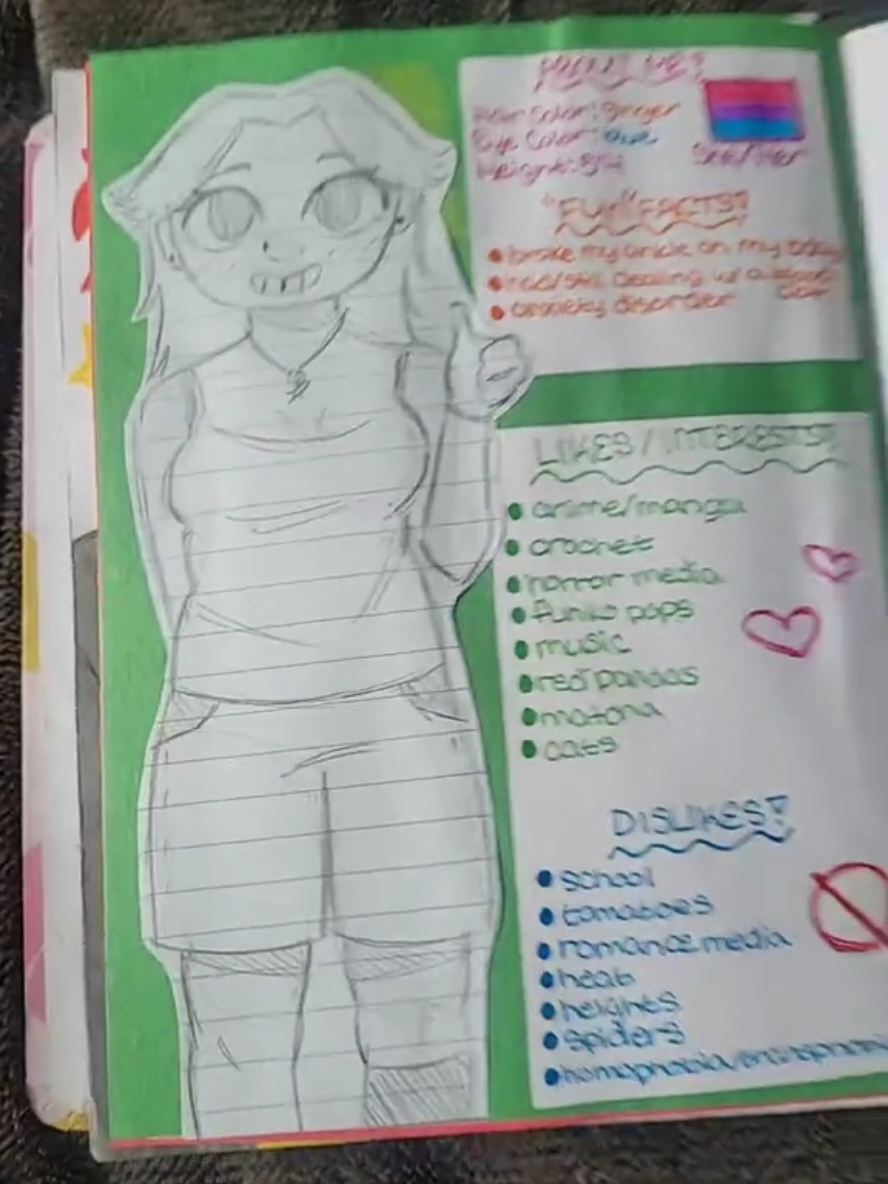 ABOUT ME!
Hair Color: Ginger
Eye Color: Blue
Height: 5'4
She/Her
"FUN" FACTS!
• broke my ankle on my bday
• had/still dealing w/ a blood clot
• anxiety disorder
LIKES/INTERESTS!
• anime/manga
• crochet
• horror media
• funko pops
• music
• red pandas
• cats
DISLIKES!
• school
• tomatoes
• romance media
• heat
• heights
• spiders
• homophobia/